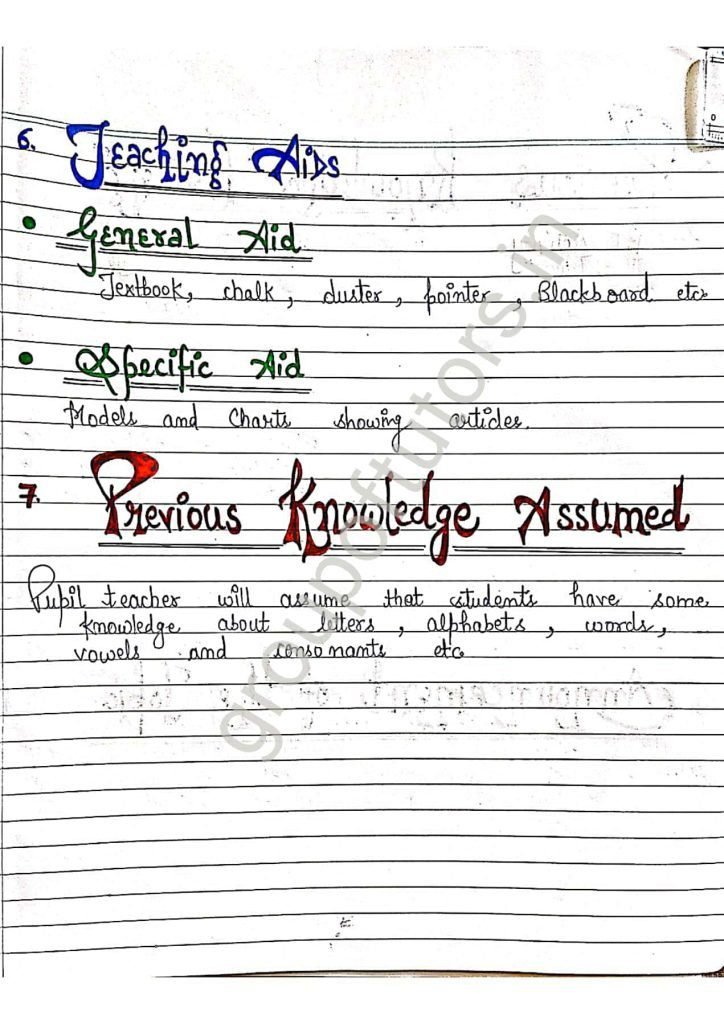 6. Teaching Aids
• General Aid
Textbook, chalk, duster, pointer, Blackboard etc.
• Specific Aid
Models and Charts showing articles.
7. Previous Knowledge Assumed
Pupil teacher will assume that students have some
knowledge about letters, alphabets, words,
vowels and consonants etc
groupoftutors.in